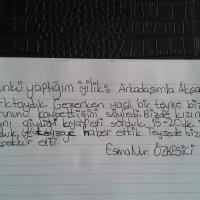 ünkü yaptığım iyilik: Arkadaşımla Aksa
arktaydık. Gezerken yaşlı bir teyze biz
ununu kaybettiğini söyledi. Bizde kızın
giydiği kıyafeti sorduk. 15-20dk.
duk, ve teyzeye haber ettik. Teyzede biz
şekkür etti.
Esma Nur ÖZKESİCİ